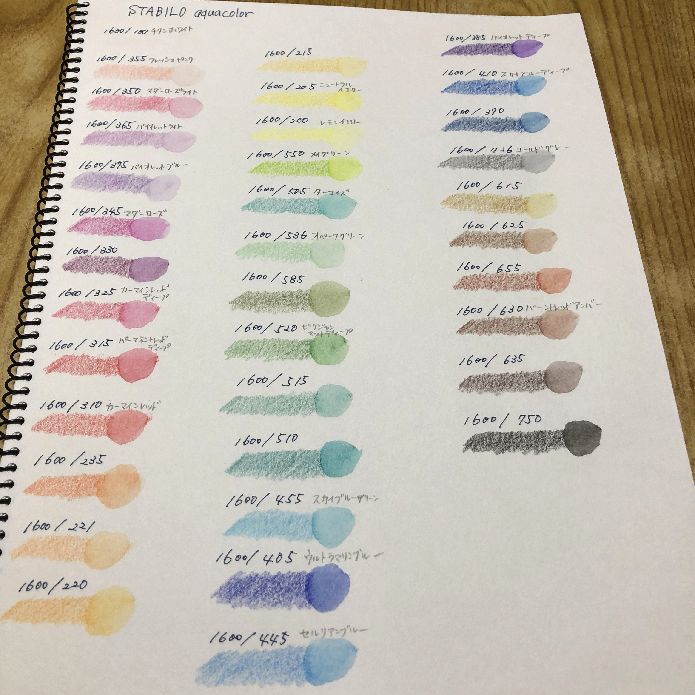 STABILO aquacolor
1600/100 チタンホワイト
1600/355 フレッシュピンク
1600/350 マダーローズライト
1600/365 バイオレットライト
1600/375 バイオレットブルー
1600/345 マダーローズ
1600/330
1600/325 カーマインレッド
ディープ
1600/315 パーマネントレッド
ディープ
1600/310 カーマインレッド
1600/235
1600/221
1600/220
1600/215
1600/205 ニュートラル
イエロー
1600/200 レモンイエロー
1600/550
1600/505 ターコイズ
1600/536
1600/585
1600/520
1600/515
1600/510
1600/455 スカイブルーグリーン
1600/405 ウルトラマリンブルー
1600/445 セルリアンブルー
1600/385 バイオレットディープ
1600/410 スカイブルーディープ
1600/390
1600/726 コールドグレー
1600/615
1600/625
1600/655
1600/630 バーントレッドアンバー
1600/635
1600/750